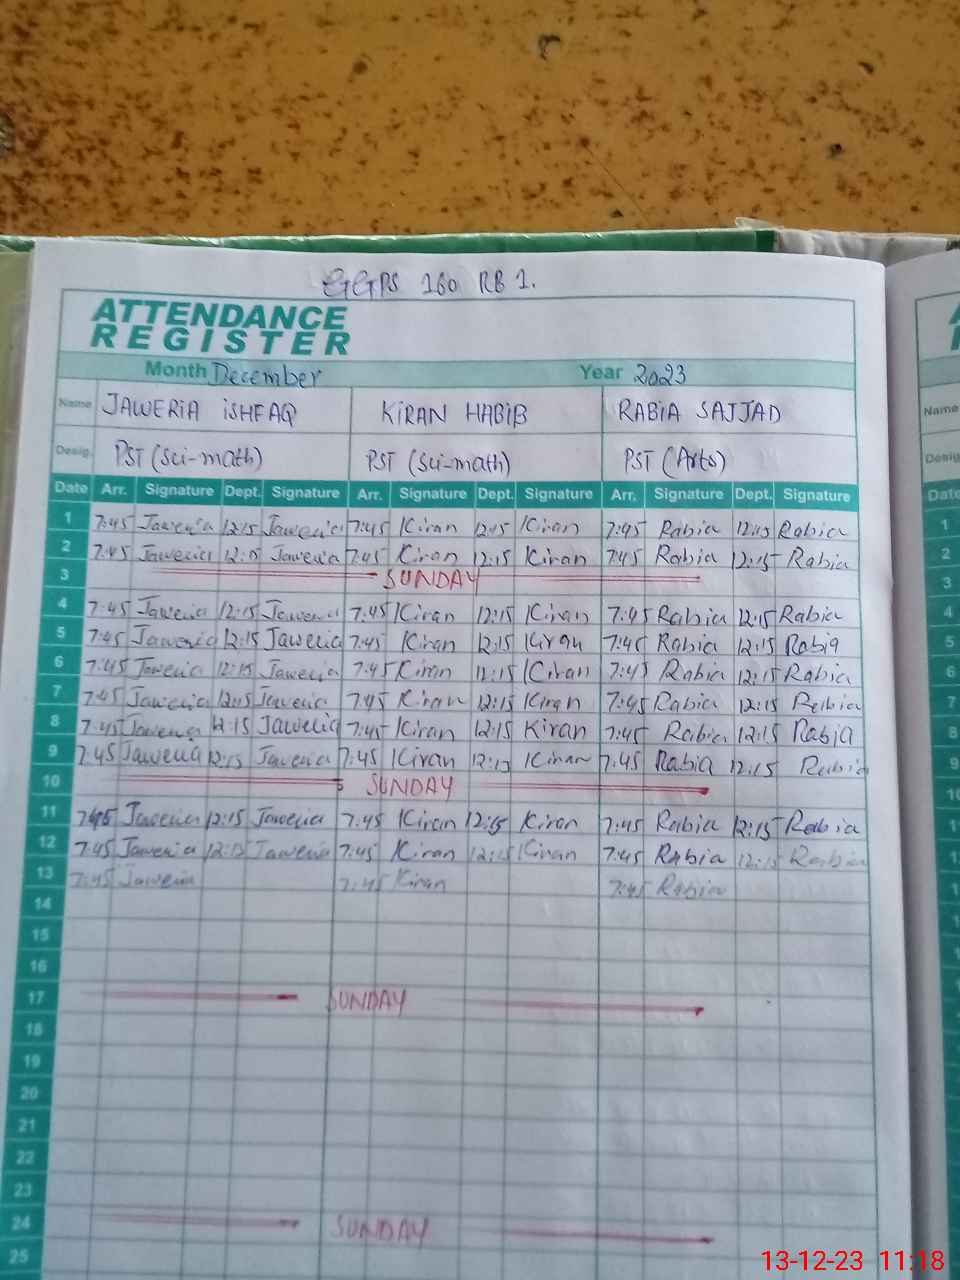 GGPS 160 RB 1.
ATTENDANCE
REGISTER
Month December Year 2023
Name JAWERIA iSHFAQ KiRAN HABIB RABIA SAJJAD
Desig. PST (Sci-math) PST (Sci-math) PST (Arts)
Date Arr. Signature Dept. Signature Arr. Signature Dept. Signature Arr. Signature Dept. Signature Date
1 7:45 Jaweria 12:15 Jaweria 7:45 Kiran 12:15 Kiran 7:45 Rabia 12:15 Rabia 1
2 7:45 Jaweria 12:15 Jaweria 7:45 Kiran 12:15 Kiran 7:45 Rabia 12:15 Rabia 2
3 SUNDAY 3
4 7:45 Jaweria 12:15 Jaweria 7:45 Kiran 12:15 Kiran 7:45 Rabia 12:15 Rabia 4
5 7:45 Jaweria 12:15 Jaweria 7:45 Kiran 12:15 Kiran 7:45 Rabia 12:15 Rabia 5
6 7:45 Jaweria 12:15 Jaweria 7:45 Kiran 12:15 Kiran 7:45 Rabia 12:15 Rabia 6
7 7:45 Jaweria 12:15 Jaweria 7:45 Kiran 12:15 Kiran 7:45 Rabia 12:15 Rabia 7
8 7:45 Jaweria 12:15 Jaweria 7:45 Kiran 12:15 Kiran 7:45 Rabia 12:15 Rabia 8
9 7:45 Jaweria 12:15 Jaweria 7:45 Kiran 12:15 Kiran 7:45 Rabia 12:15 Rabia 9
10 SUNDAY 10
11 7:45 Jaweria 12:15 Jaweria 7:45 Kiran 12:15 Kiran 7:45 Rabia 12:15 Rabia
12 7:45 Jaweria 12:15 Jaweria 7:45 Kiran 12:15 Kiran 7:45 Rabia 12:15 Rabia
13 7:45 Jaweria 7:45 Kiran 7:45 Rabia
14
15
16
17 SUNDAY
18
19
20
21
22
23
24 SUNDAY
25
Name
13-12-23 11:18